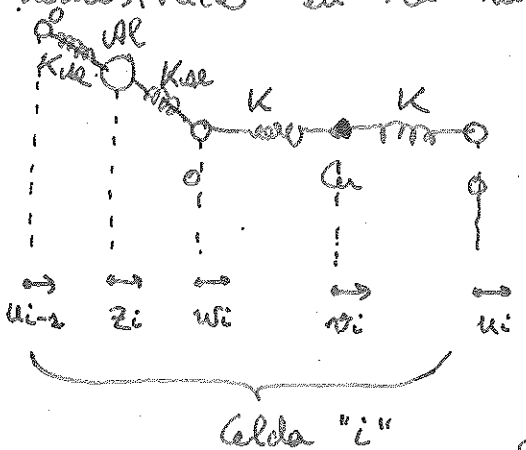 O Al
K_Al K_Al K K
O Cu O
u_{i-1} z_i w_i v_i u_i
Celda "i"